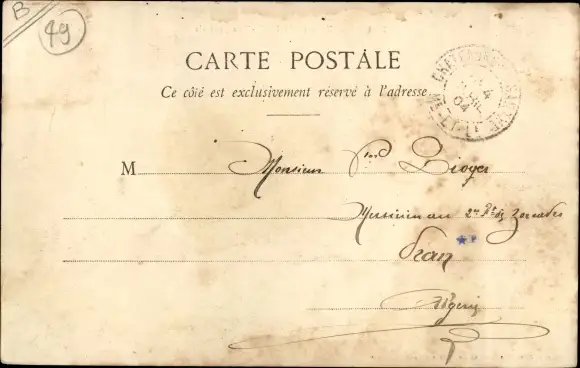 B
49
CARTE POSTALE
Ce côté est exclusivement réservé à l'adresse
4
04
M Monsieur
Musicien au 2me Rt de Zouaves
Oran
Algérie